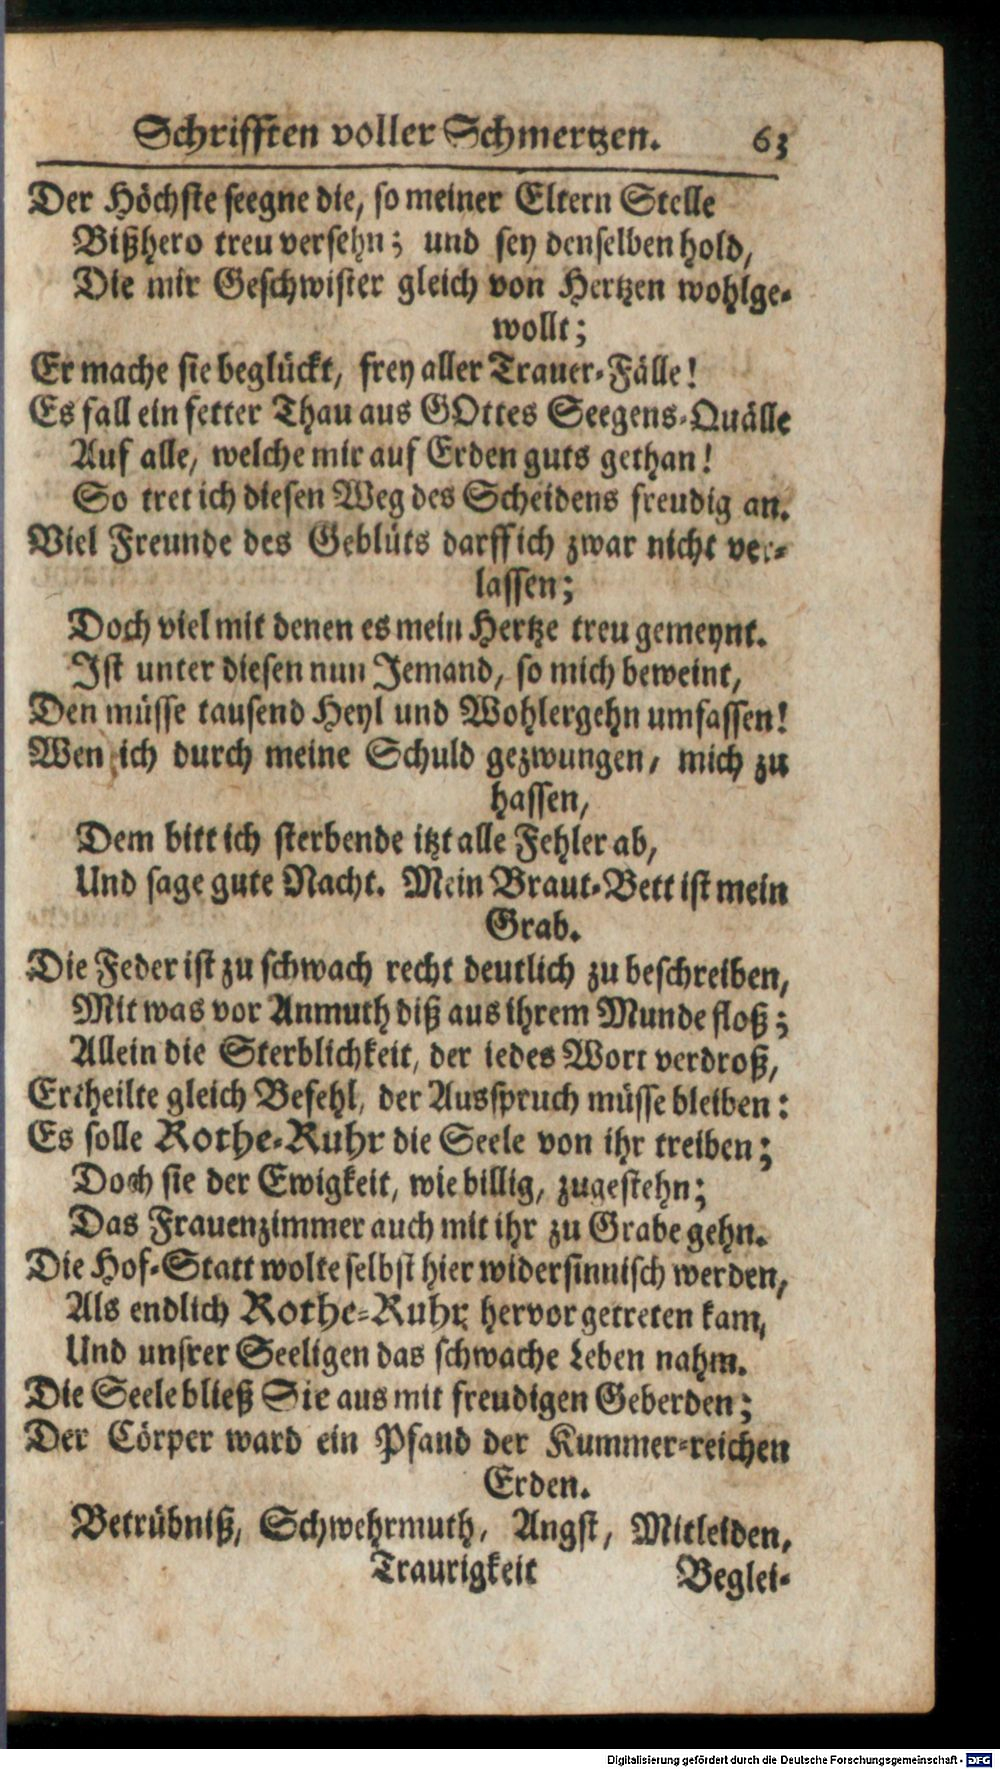 Schrifften voller Schmertzen. 63
Der Höchste seegne die, so meiner Eltern Stelle
Bißhero treu versehn; und sey denselben hold,
Die mir Geschwister gleich von Hertzen wohlge-
wollt;
Er mache sie beglückt, frey aller Trauer-Fälle!
Es fall ein fetter Thau aus GOttes Seegens-Quälle
Auf alle, welche mir auf Erden guts gethan!
So tret ich diesen Weg des Scheidens freudig an.
Viel Freunde des Geblüts darff ich zwar nicht ver-
lassen;
Doch viel mit denen es mein Hertze treu gemeynt.
Ist unter diesen nun Jemand, so mich beweint,
Den müsse tausend Heyl und Wohlergehn umfassen!
Wen ich durch meine Schuld gezwungen, mich zu
hassen,
Dem bitt ich sterbende itzt alle Fehler ab,
Und sage gute Nacht. Mein Braut-Bett ist mein
Grab.
Die Feder ist zu schwach recht deutlich zu beschreiben,
Mit was vor Anmuth diß aus ihrem Munde floß;
Allein die Sterblichkeit, der iedes Wort verdroß,
Ertheilte gleich Befehl, der Ausspruch müsse bleiben:
Es solle Rothe-Ruhr die Seele von ihr treiben;
Doch sie der Ewigkeit, wie billig, zugestehn;
Das Frauenzimmer auch mit ihr zu Grabe gehn.
Die Hof-Statt wolte selbst hier widersinnisch werden,
Als endlich Rothe-Ruhr hervor getreten kam,
Und unsrer Seeligen das schwache Leben nahm.
Die Seele bließ Sie aus mit freudigen Geberden;
Der Cörper ward ein Pfand der Kummer-reichen
Erden.
Betrübniß, Schwehrmuth, Angst, Mitleiden,
Traurigkeit Beglei-
Digitalisierung gefördert durch die Deutsche Forschungsgemeinschaft - DFG